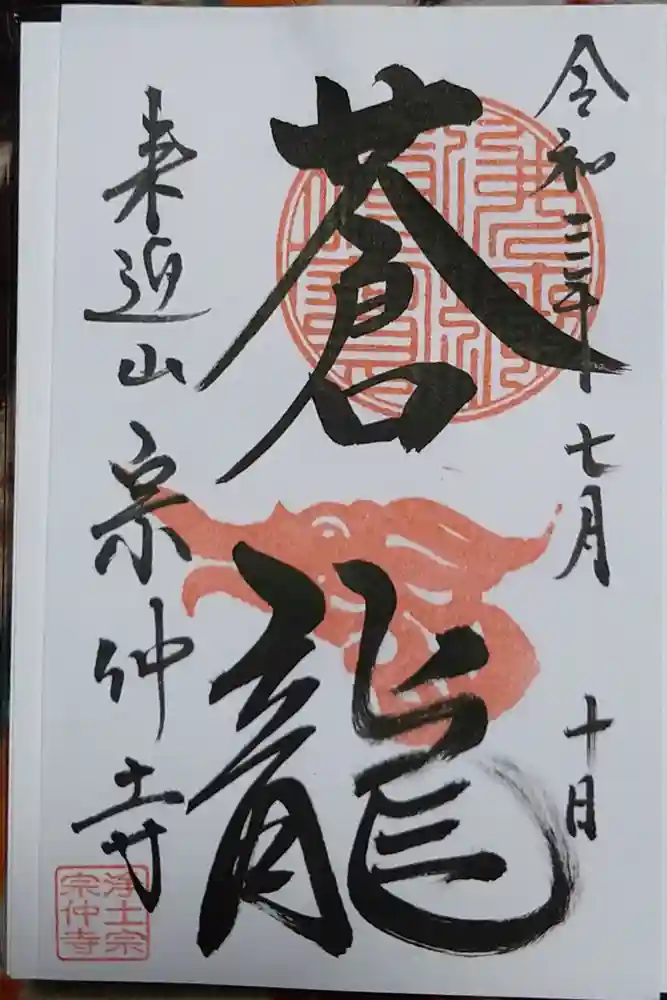 令和三年七月十日
蒼龍
来近山宗仲寺
浄土宗
宗仲寺